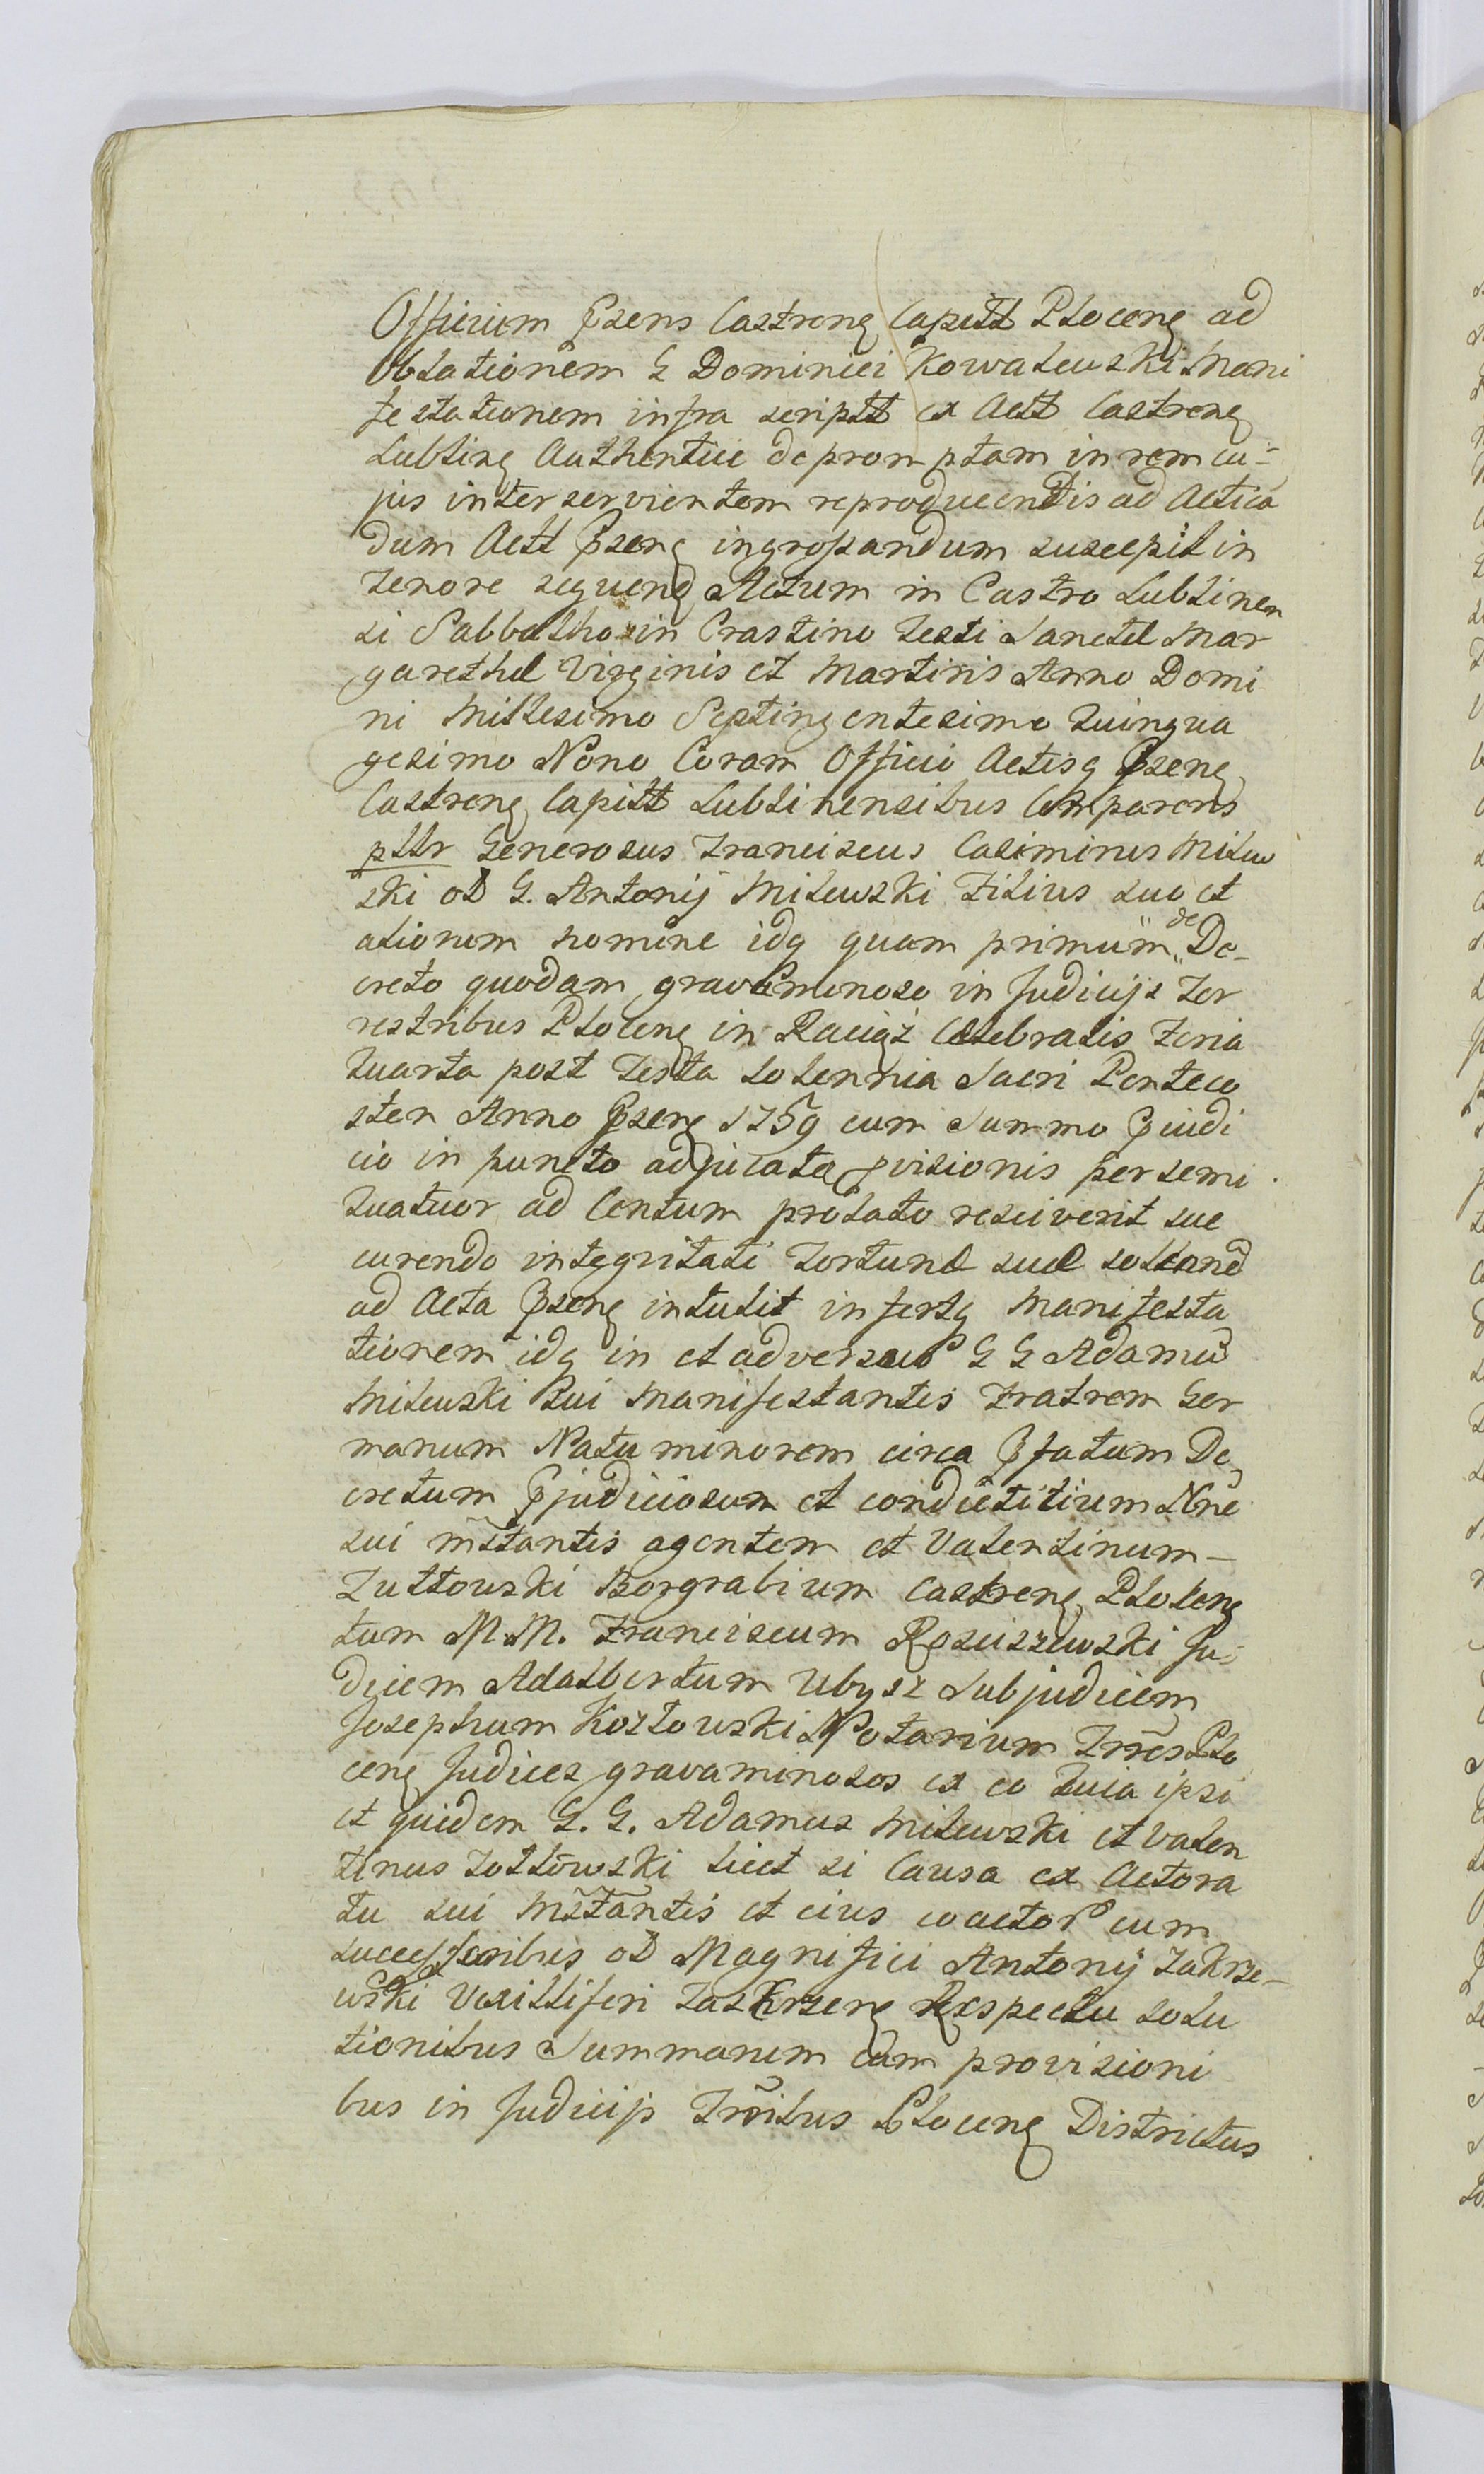 Officium Pssens Castreng Capittt Ploceng ad
Oblationem G Dominici Kowalewski Mani
festationem infra scriptt ex Actt Castreng
Lubling Authentice depromptam in rem cu-
jus interservientem reproducendis ad Actica
dum Actt Psseng ingrossandum suscepit in
tenore sequend Actum in Castro Lublinen
si Sabbatho in Crastino Festi Sanctae Mar
garethae Virginis et Martiris Anno Domi
ni Millesimo Septingentesimo Quinqua
gesimo Nono Coram Officio Actisq Psseng
Castreng Capittt Lublinensibus Comparens
pttr Generosus Franciscus Casimirus Milew
ski olt G. Antonij Milewski Filius suo et
aliorum nomine idq quam primum de De-
creto quodam gravaminoso in Judicijs Ter
restribus Ploceng in Raciąż Celebratis Feria
Quarta post Festa Solennia Sacri Penteco
sten Anno Psseng 1759 cum Summo Pjudi
cio in puncto adjucatae pvisionis per semi
Quatuor ad Centum prolato resciverit suc
curendo integritati Fortunae suae solenнd
ad Acta Psseng intulit infertq Manifesta
tionem idq in et adversus G G Adamum
Milewski sui Manifestantis Fratrem Ger
manum Natu minorem circa Pfatum De
cretum Pjudiciosum et condictitium Nne
sui mstantis agentem et Valentinum -
Zułtowski Borgrabium Castreng Ploceng
tum M.M. Franciscum Rosciszewski Ju-
dicem Adalbertum Ubysz Subjudicem
Josephum Kozłowski Notarium Trres Plo
ceng Judices gravaminosos ex eo Quia ipsi
et quidem G. G. Adamus Milewski et Valen
tinus Zołtowski licet si Causa ex Actora
tu sui Mstantis et eius coactor cum
Successoribus olt Magnifici Antonij Zakrze-
wski Vexilliferi Zaskrzeng Respectu solu
tionibus Summarum cum provisioni
bus in Judicijs Trribus Ploceng Districtus